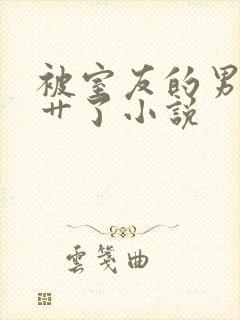 被室友的男
艹了小说
雲箋曲